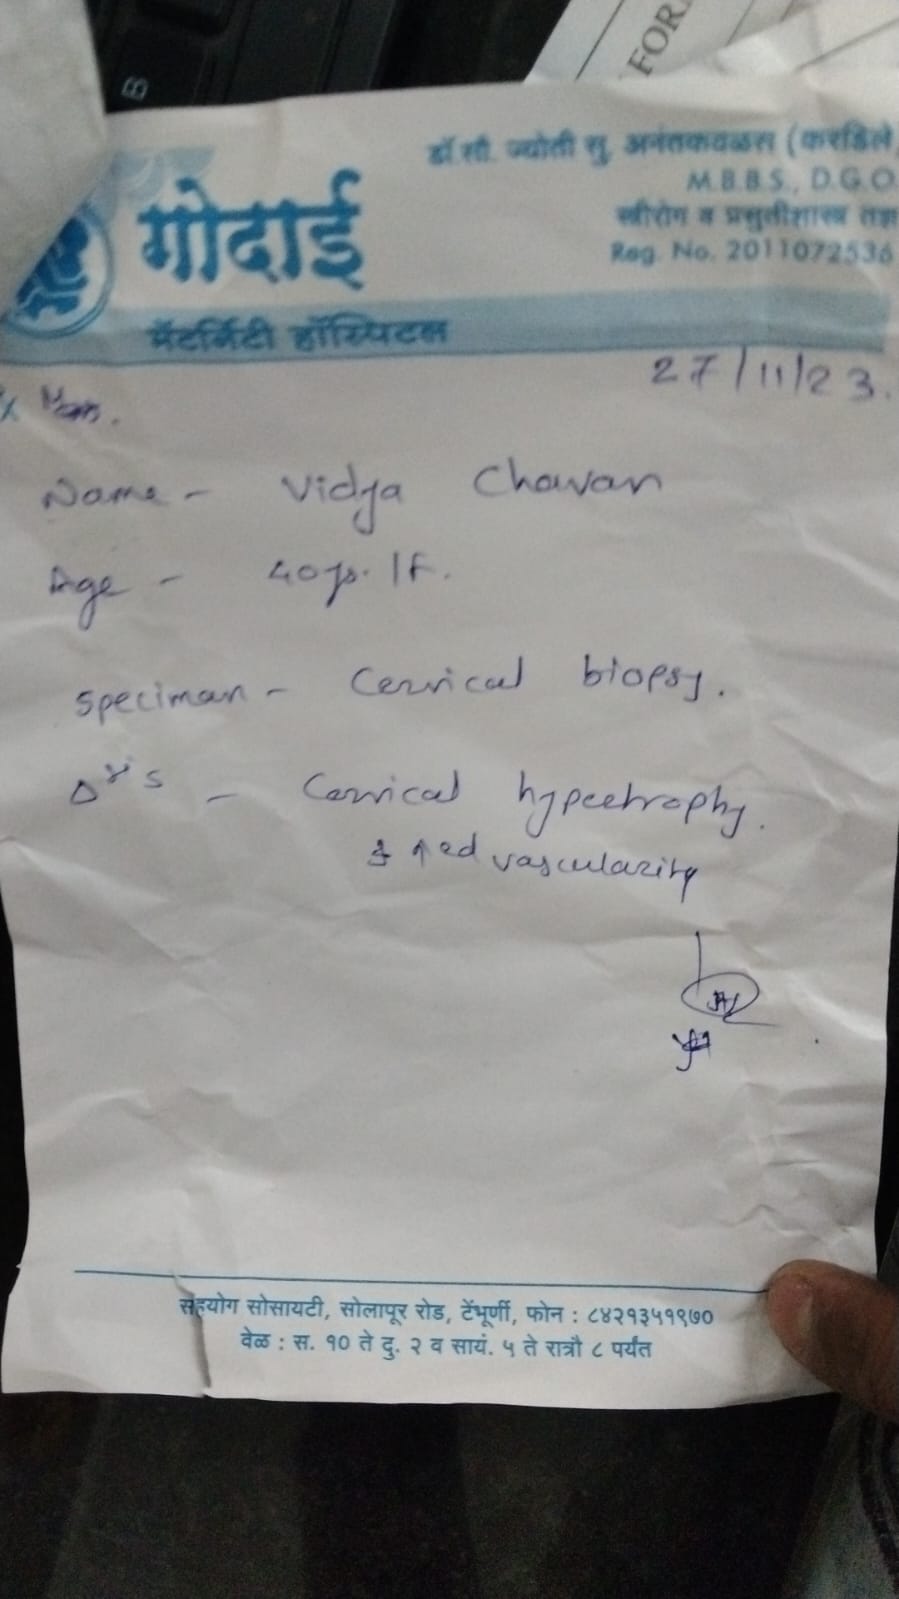 FOR
डॉ.सौ. ज्योती सु. अनंतकवळस (करडिले
M.B.B.S., D.G.O.
स्त्रीरोग व प्रसुतीशास्त्र तज्ञ
Reg. No. 2011072536
गोदाई
मॅटर्निटी हॉस्पिटल
27/11/23.
Name - Vidya Chavan
Age - 40 yrs. / F.
Speciman - Cervical biopsy.
Δsis - Cervical hypertrophy.
↑ed vascularity
सहयोग सोसायटी, सोलापूर रोड, टेंभूर्णी, फोन : ८४२१३५१९७०
वेळ : स. १० ते दु. २ व सायं. ५ ते रात्रौ ८ पर्यंत